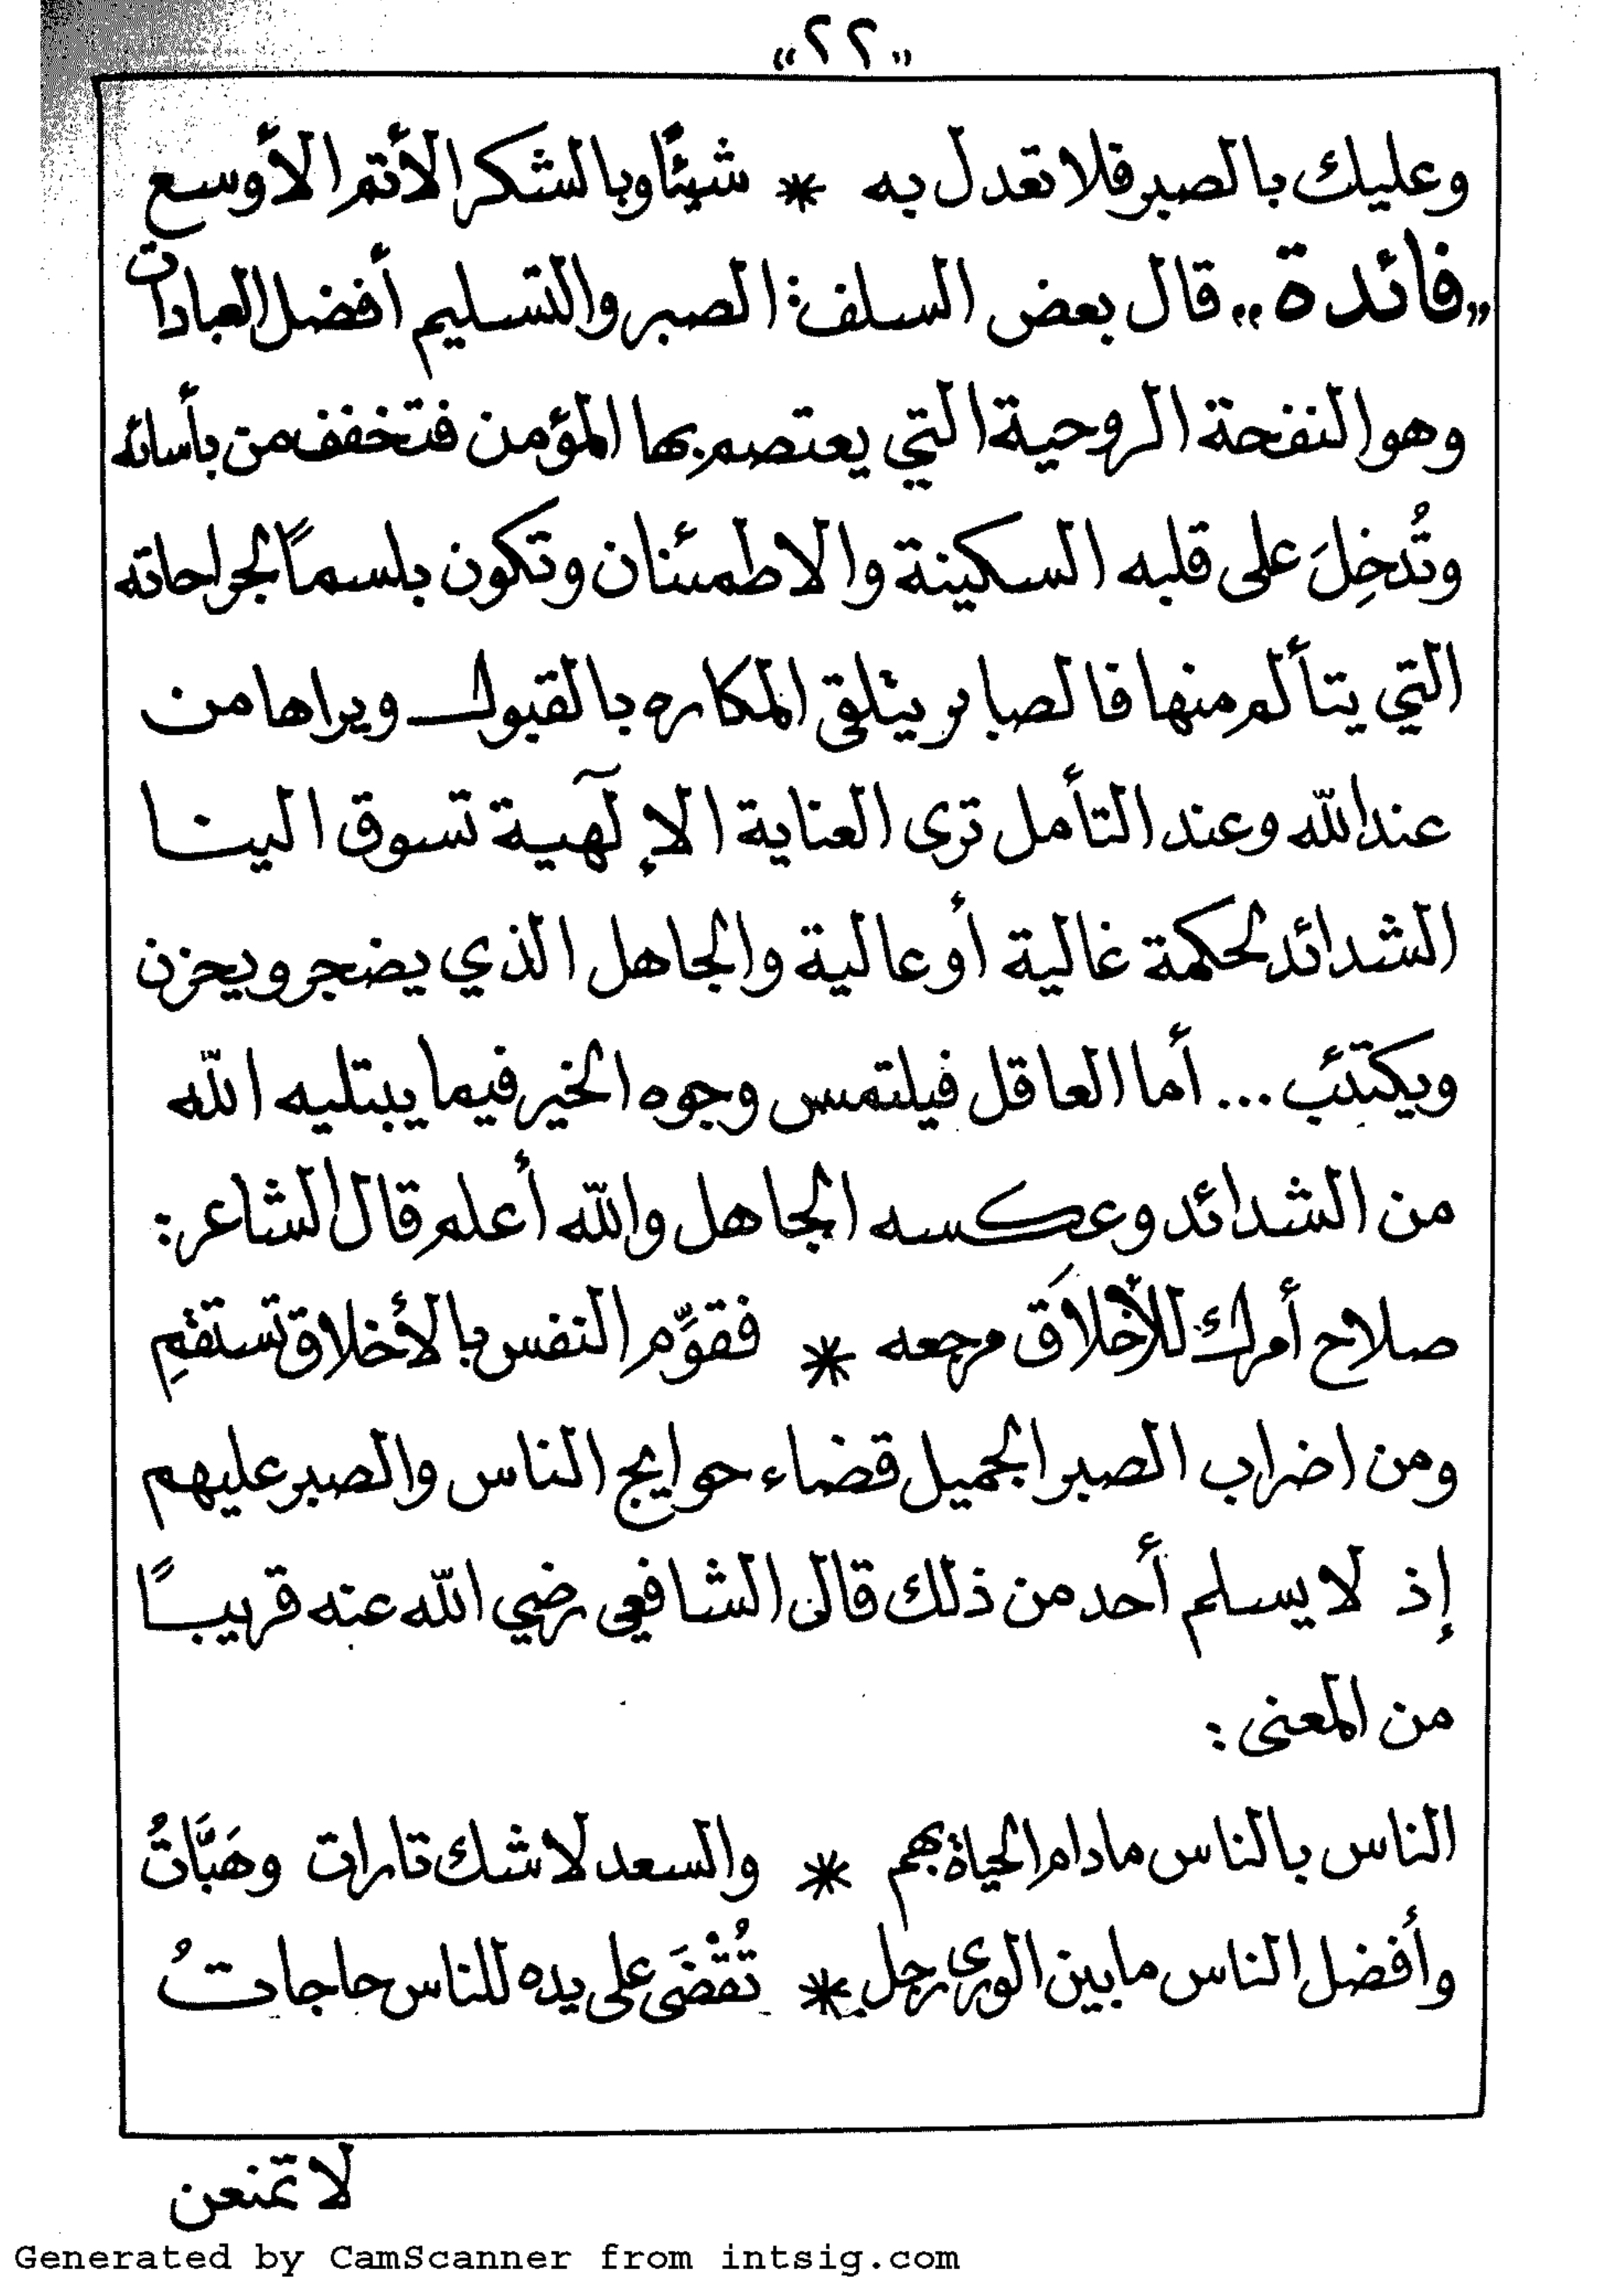 «٢٢»
وعليك بالصبر فلا تعدل به * شيئًا وبالشكر الأتم الأوسع
«فائدة» قال بعض السلف: الصبر والتسليم أفضل العبادات
وهو النفحة الروحية التي يعتصم بها المؤمن فتخفف من بأسائه
وتُدخِلَ على قلبه السكينة والاطمئنان وتكون بلسماً لجراحاته
التي يتألم منها فالصابر يتلقى المكاره بالقبول ويراها من
عند الله وعند التأمل ترى العناية الإلٓهية تسوق الينا
الشدائد لحكمة غالية أو عالية والجاهل الذي يضجر ويحزن
ويكتئب ... أما العاقل فيلتمس وجوه الخير فيما يبتليه الله
من الشدائد وعكسه الجاهل والله أعلم قال الشاعر:
صلاح أمرك للأخلاَق مرجعه * فقوِّم النفس بالأخلاق تستقمِ
ومن اضراب الصبر الجميل قضاء حوايج الناس والصبر عليهم
إذ لا يسلم أحد من ذلك قال الشافعي رضي الله عنه قريبًا
من المعنى:
الناس بالناس مادام الحياة بهم * والسعد لا شك تارات وهَبَّاتُ
وأفضل الناس ما بين الورى رجل * تُقْضَى على يده للناس حاجاتُ
لا تمنعن
Generated by CamScanner from intsig.com